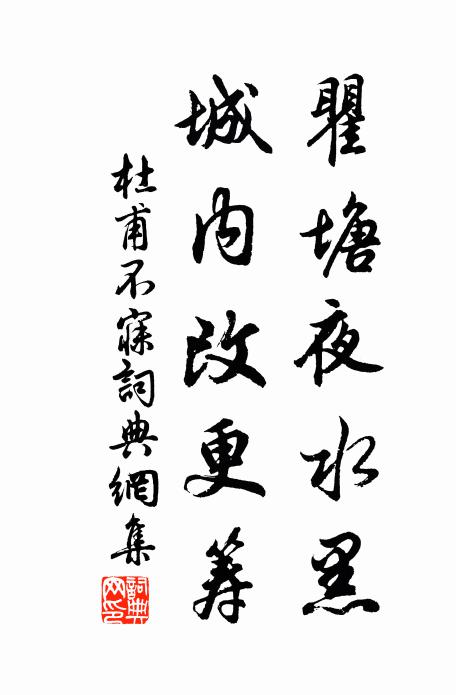 瞿塘夜水黑
城内改更筹
杜甫不寐詞典網集
詞典网印